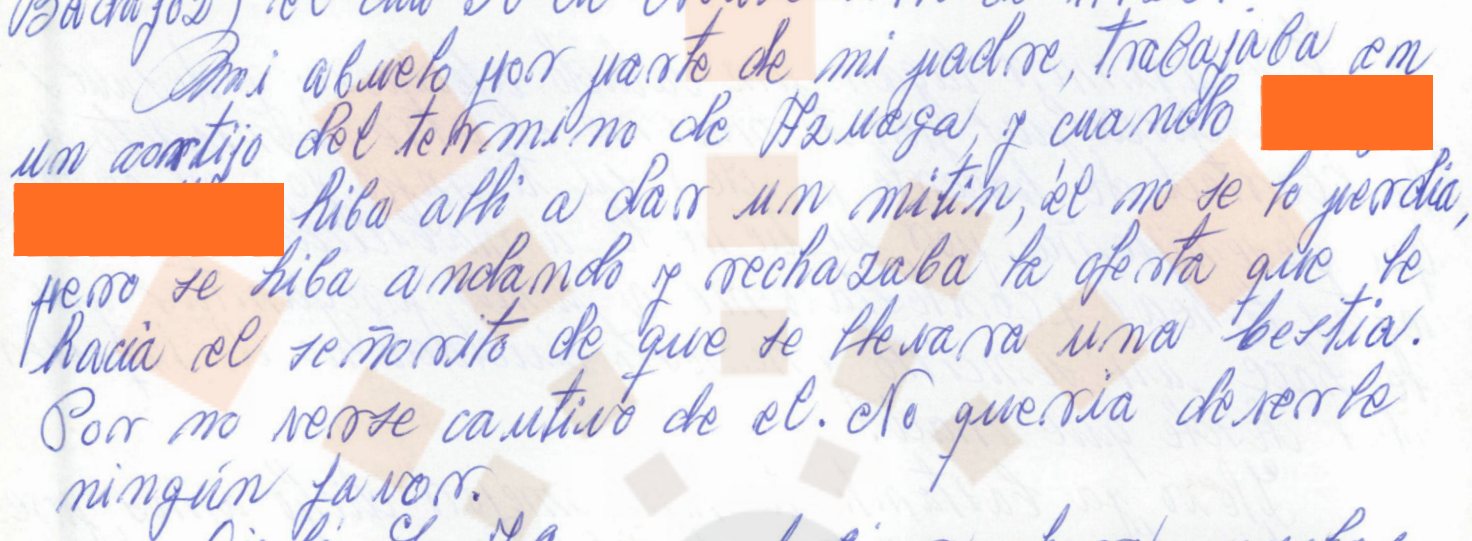 Badajoz) el
Mi abuelo por parte de mi padre, trabajaba en
un cortijo del termino de Azuaga, y cuando
hiba alli a dar un mitin, él no se lo perdia,
pero se hiba andando y rechazaba la oferta que le
hacia el señorito de que se llevara una bestia.
Por no verse cautivo de el. No queria deverle
ningún favor.